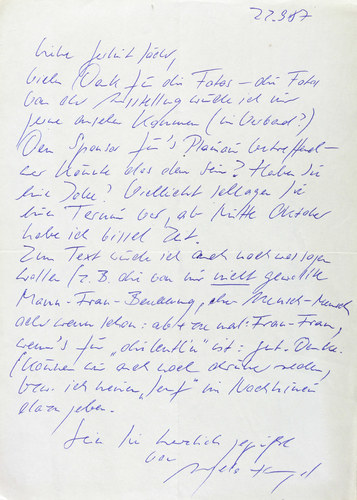 22.9.87
Liebe
vielen Dank für die Fotos – die Fotos
von der Ausstellung würde ich mir
gerne ansehen kommen (in Verbad?)
Den Sponsor für's betreffend –
wer könnte das denn sein? Haben Sie
eine Idee? Vielleicht schlagen Sie
einen Termin vor, ab Mitte Oktober
habe ich bissel Zeit.
Zum Text würde ich auch noch was sagen
wollen (z.B. die von mir nicht gewollte
Mann-Frau-Benennung, eher Mensch-Mensch
oder wenn schon: aber Frau-Frau,
wenn's für ist: gut. Danke.
(Können wir auch noch drüber reden,
bzw. ich meinen „Senf“ im Nachhinein
dazu geben.
Seien Sie herzlich gegrüßt
von